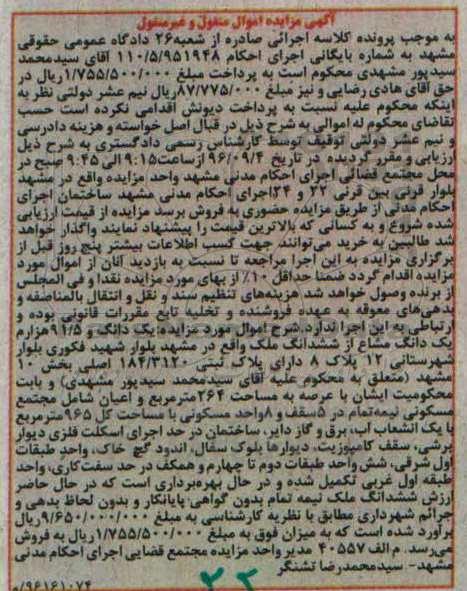 آگهی مزایده اموال منقول و غیرمنقول
به موجب پرونده کلاسه اجرائی صادره از شعبه۲۶ دادگاه عمومی حقوقی
مشهد به شماره بایگانی اجرای احکام ۱۱۰/۵/۹۵۱۹۴۸ آقای سیدمحمد
سیدپور مشهدی محکوم است به پرداخت مبلغ ۱/۷۵۵/۵۰۰/۰۰۰ریال در
حق آقای هادی رضایی و نیز مبلغ ۸۷/۷۷۵/۰۰۰ریال نیم عشر دولتی نظر به
اینکه محکوم علیه نسبت به پرداخت دیونش اقدامی نکرده است حسب
تقاضای محکوم له اموالی به شرح ذیل در قبال اصل خواسته و هزینه دادرسی
و نیم عشر دولتی توقیف توسط کارشناس رسمی دادگستری به شرح ذیل
ارزیابی و مقرر گردیده در تاریخ ۹۶/۰۹/۴ ازساعت۹:۱۵ الی ۹:۴۵ صبح در
محل مجتمع قضائی اجرای احکام مدنی مشهد واحد مزایده واقع در مشهد
بلوار قرنی بین قرنی ۲۲ و ۲۴اجرای احکام مدنی مشهد ساختمان اجرای
احکام مدنی از طریق مزایده حضوری به فروش برسد مزایده از قیمت ارزیابی
شده شروع و به کسانی که بالاترین قیمت را پیشنهاد نمایند واگذار خواهد
شد طالبین به خرید می‌توانند جهت کسب اطلاعات بیشتر پنج روز قبل از
برگزاری مزایده به این اجرا مراجعه تا نسبت به بازدید آنان از اموال مورد
مزایده اقدام گردد ضمنا حداقل ۱۰٪ از بهای مورد مزایده نقدا و فی المجلس
از برنده وصول خواهد شد هزینه‌های تنظیم سند و نقل و انتقال بالمناصفه و
بدهی‌های معوقه به عهده فروشنده و تخلیه تابع مقررات قانونی بوده و
ارتباطی به این اجرا ندارد.شرح اموال مورد مزایده:یک دانگ و ۹۱/۵هزارم
یک دانگ مشاع از ششدانگ ملک واقع در مشهد بلوار شهید فکوری بلوار
شهرستانی ۱۲ پلاک ۸ دارای پلاک ثبتی ۱۸۴/۳۱۲۰ اصلی بخش ۱۰
مشهد (متعلق به محکوم علیه آقای سیدمحمد سیدپور مشهدی) و بابت
محکومیت ایشان با عرصه به مساحت ۲۶۴مترمربع و اعیان شامل مجتمع
مسکونی نیمه‌تمام در ۵سقف و ۸واحد مسکونی با مساحت کل ۹۶۵مترمربع
با یک انشعاب آب، برق و گاز دایر، ساختمان در حد اجرای اسکلت فلزی دیوار
برشی، سقف کامپوزیت، دیوارها بلوک سفال، اندود گچ خاک، واحد طبقات
اول شرقی، شش واحد طبقات دوم تا چهارم و همکف در حد سفت‌کاری، واحد
طبقه اول غربی تکمیل شده و در حال بهره‌برداری است که در حال حاضر
ارزش ششدانگ ملک نیمه تمام بدون گواهی پایانکار و بدون لحاظ بدهی و
جرائم شهرداری مطابق با نظریه کارشناسی به مبلغ ۹/۶۵۰/۰۰۰/۰۰۰ریال
برآورد شده است که به میزان فوق به مبلغ ۱/۷۵۵/۵۰۰/۰۰۰ریال به فروش
می‌رسد. م الف ۴۰۵۵۷ مدیر واحد مزایده مجتمع قضایی اجرای احکام مدنی
مشهد- سیدمحمدرضا تشنگر
۹۶۱۶۱۰۷۴/و
۳۳